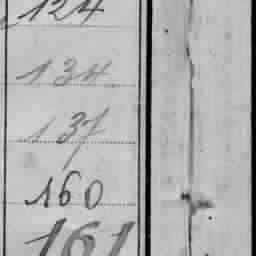 124
134
137
160
161